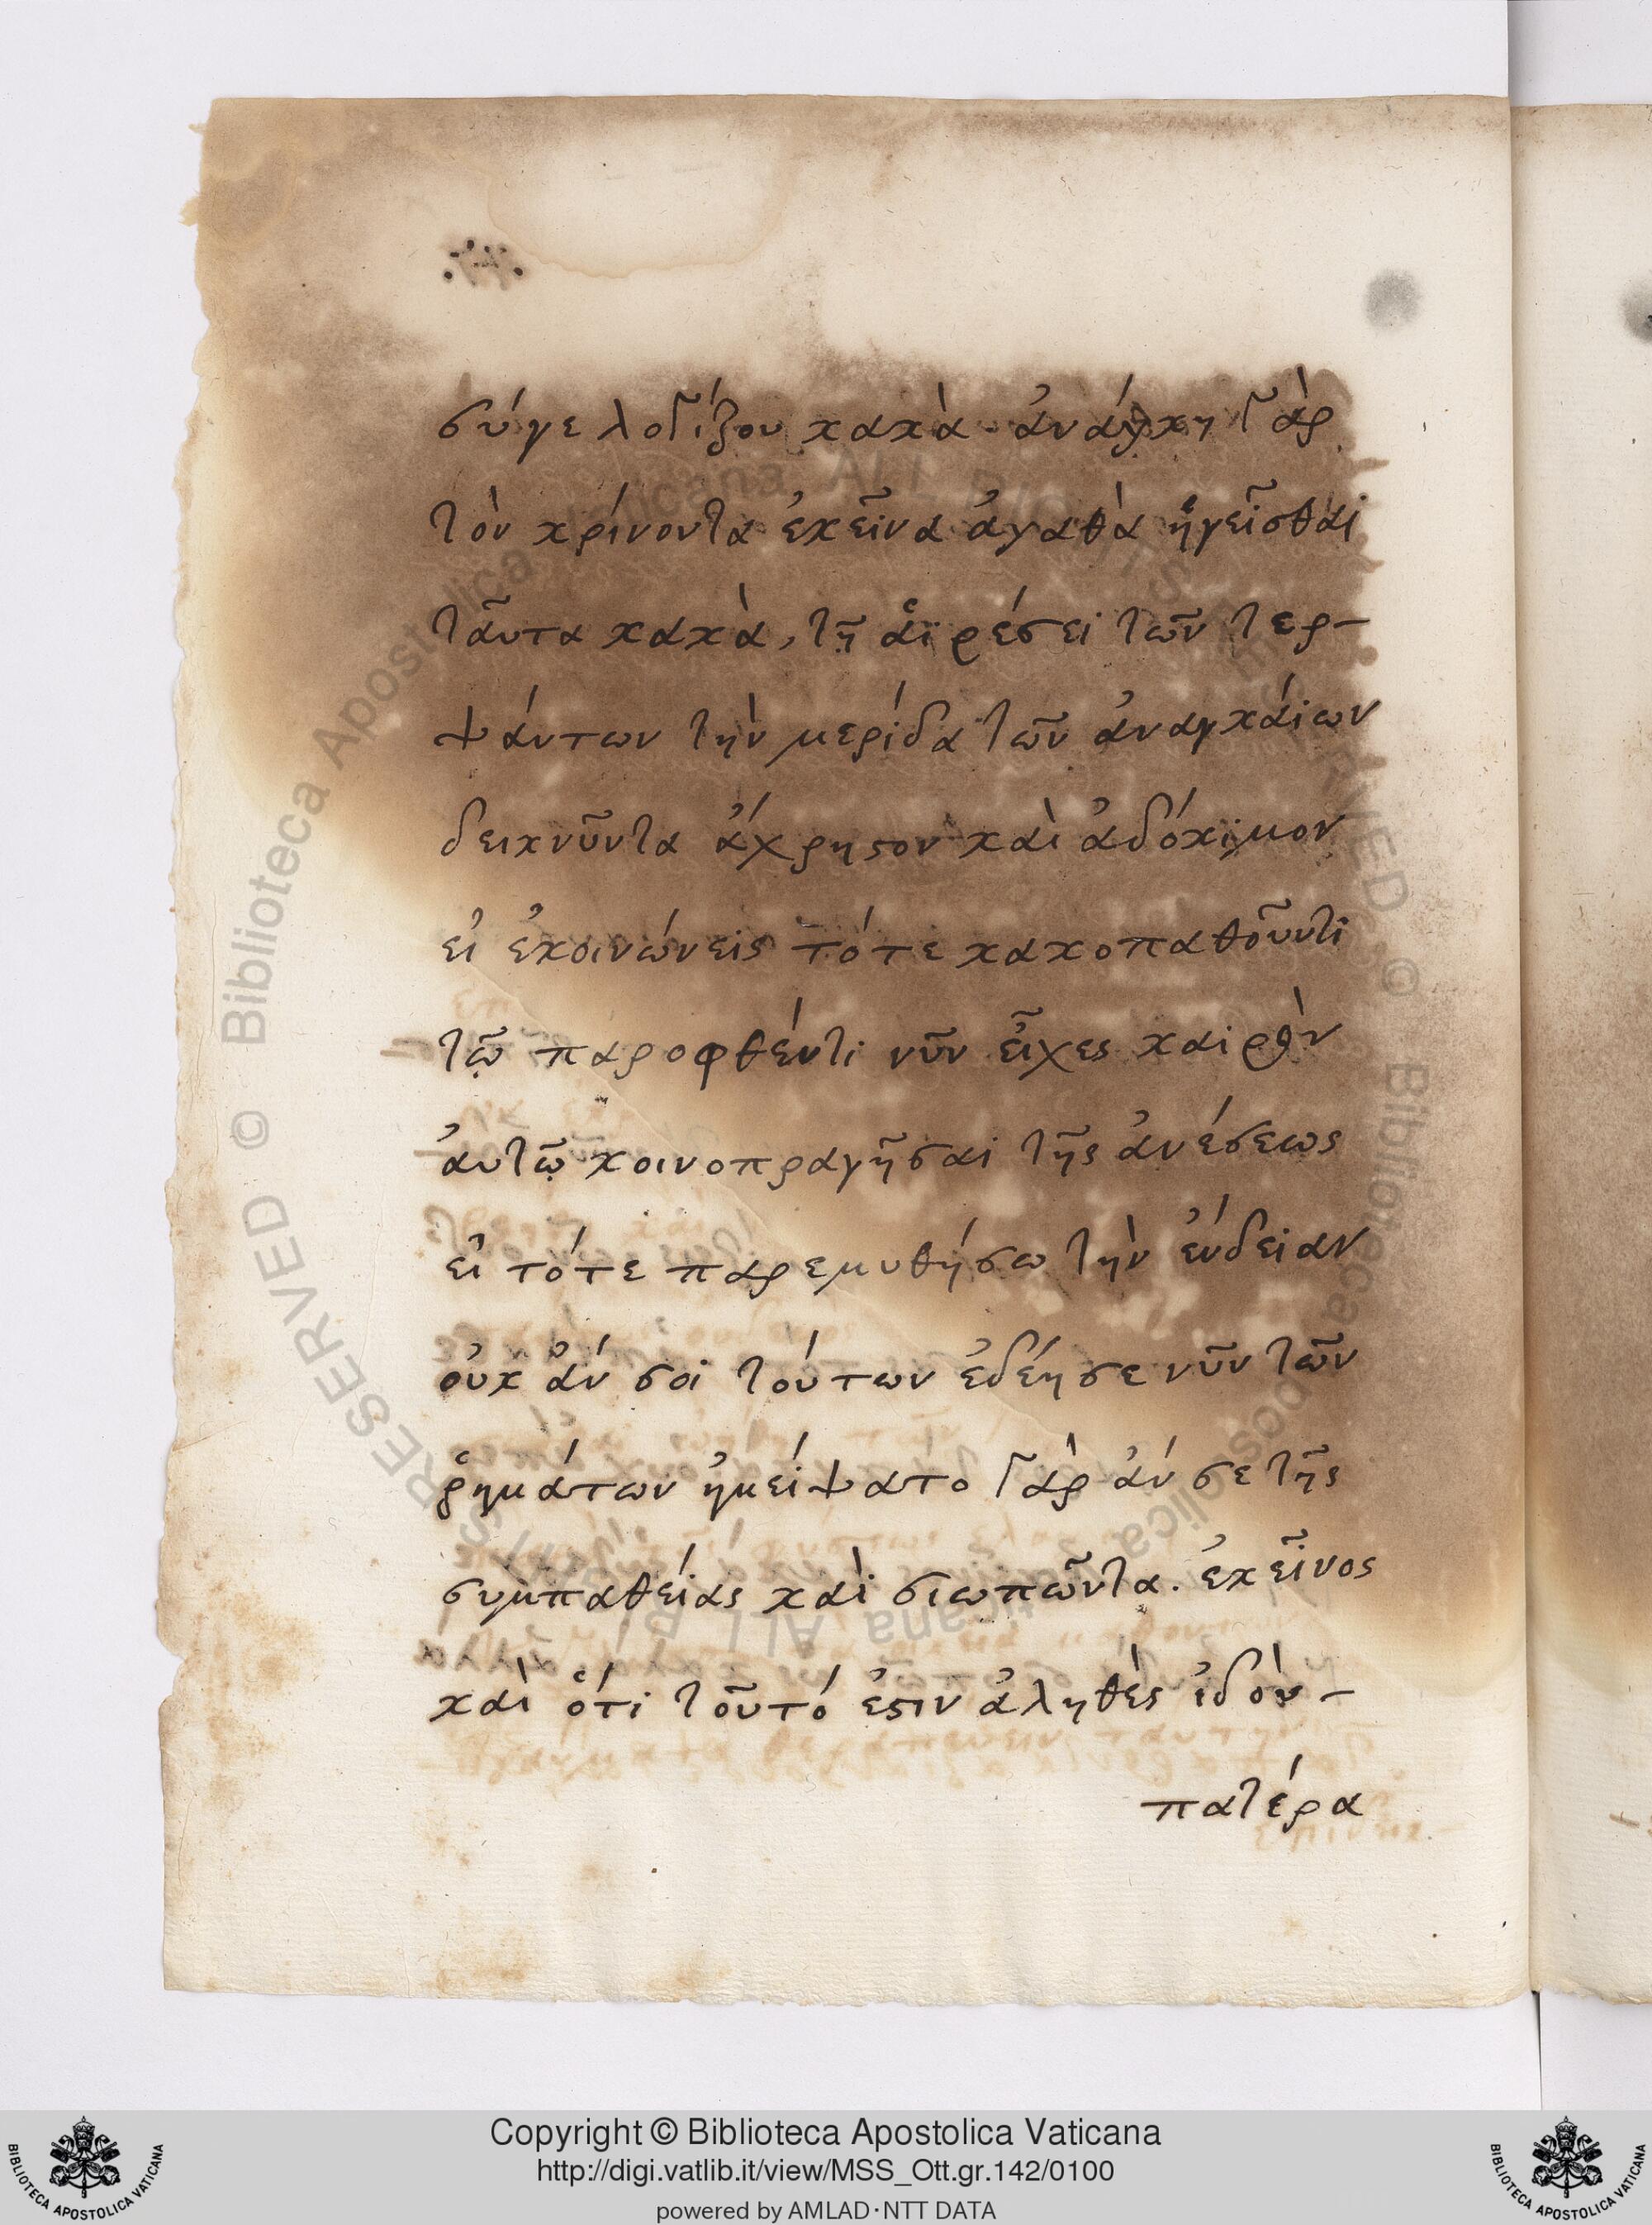 σύγε λογίζου κακὰ. ἀνάγκη γὰρ
τὸν κρίνοντα ἐκεῖνα ἀγαθὰ ἡγεῖσθαι
ταῦτα κακὰ, τῇ αἱρέσει τῶν τερ-
ψάντων τὴν μερίδα τῶν ἀναγκάιων
δεικνῦντα ἄχρηστον καὶ ἀδόκιμον
εἰ ἐκοινώνεις τότε κακοπαθοῦντι
τῷ παροφθέντι νῦν εἶχες καιρὸν
ἀυτῷ κοινοπραγῆσαι τῆς ἀνέσεως
εἰ τότε παρεμυθήσω τὴν ἔνδειαν
οὐκ ἄν σοι τούτων ἐδέησε νῦν τῶν
ῥημάτων ἠμείψατο γὰρ ἄν σε τῆς
συμπαθείας καὶ σιωπῶντα. ἐκεῖνος
καὶ ὅτι τοῦτό ἐστιν ἀληθὲς ἰδὸν-
πατέρα
Copyright © Biblioteca Apostolica Vaticana
http://digi.vatlib.it/view/MSS_Ott.gr.142/0100
powered by AMLAD·NTT DATA